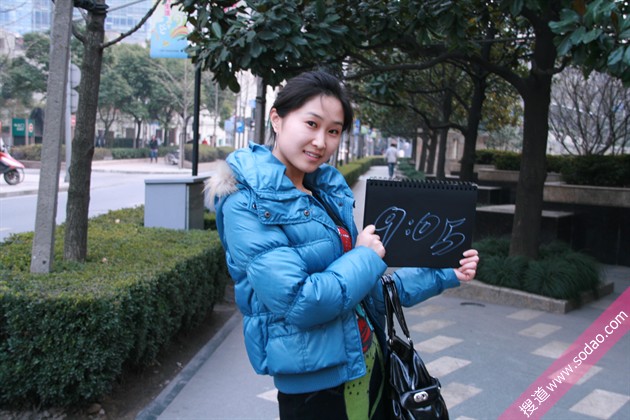 9:05
搜道 www.sodao.com